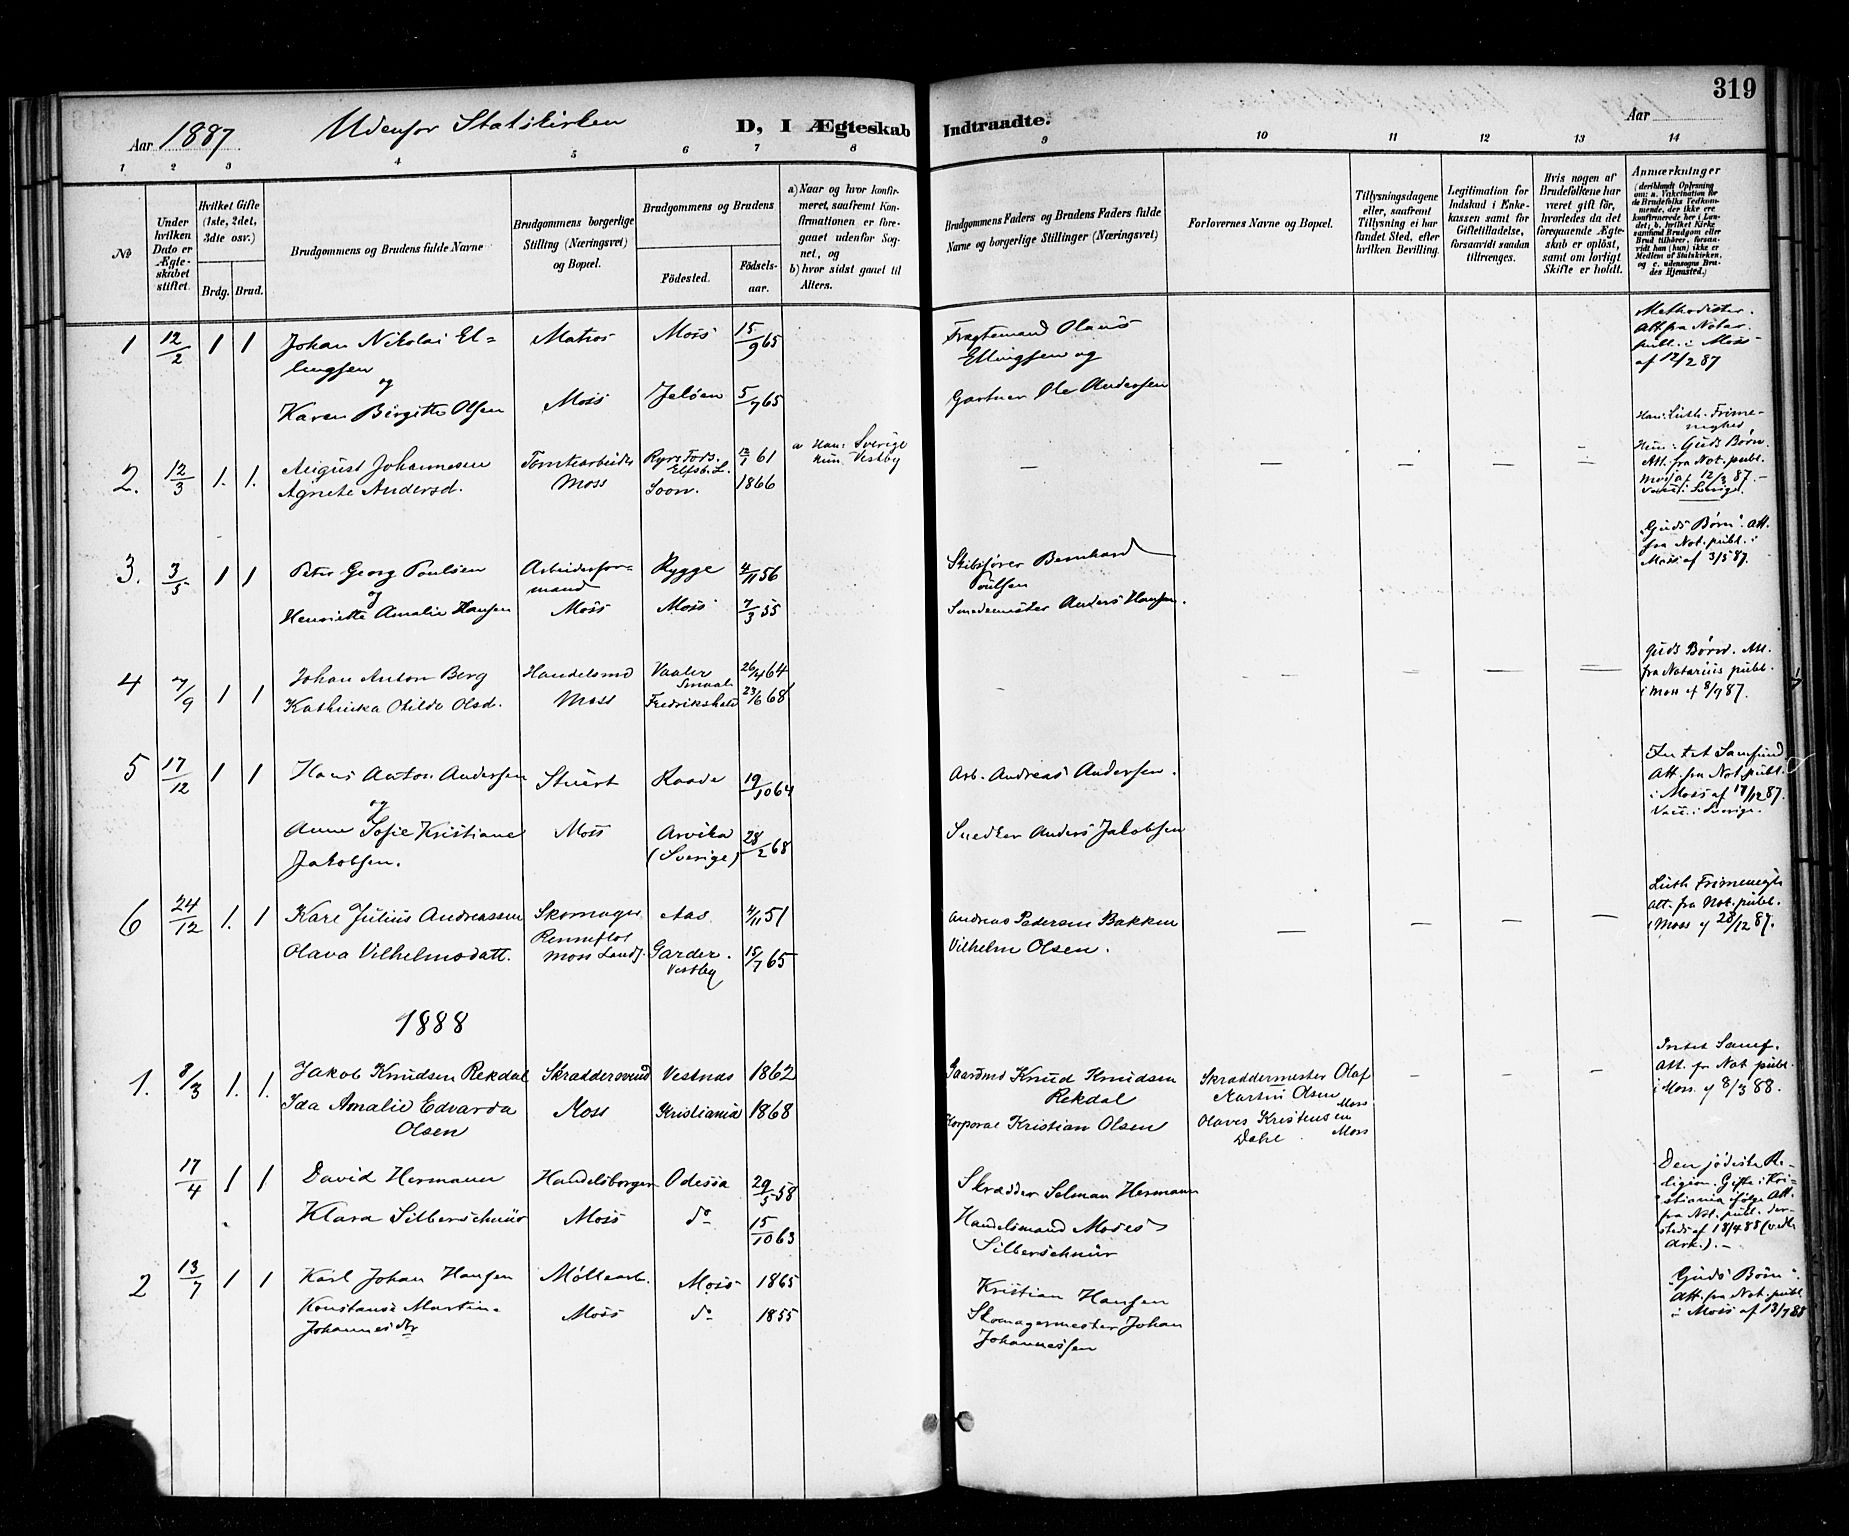 319
Aar 1887 Udenfor Statskirken D, I Ægteskab Indtraadte. Aar
1 2 3 4 5 6 7 8 9 10 11 12 13 14
№
Under hvilken Dato er Ægteskabet stiftet.
Hvilket Gifte (1ste, 2det, 3die osv.)
Brdg. Brud.
Brudgommens og Brudens fulde Navne
Brudgommens borgerlige Stilling (Næringsvei) og Bopæl.
Brudgommens og Brudens
Fødested. Fødselsaar.
a) Naar og hvor konfirmeret, saafremt Konfirmationen er foregaaet udenfor Sognet, og
b) hvor sidst gaaet til Alters.
Brudgommens Faders og Brudens Faders fulde Navne og borgerlige Stillinger (Næringsvei)
Forlovernes Navne og Bopæl.
Tillysningsdagene eller, saafremt Tillysning ei har fundet Sted, efter hvilken Bevilling.
Legitimation for Indskud i Enkekassen samt for Giftetilladelse, forsaavidt saadan tiltrænges.
Hvis nogen af Brudefolkene har været gift før, hvorledes da det foregaaende Ægteskab er opløst, samt om lovligt Skifte er holdt.
Anmærkninger
1 12/2 1 1 Johan Nikolai El-
lingsen Matros Moss 15/9 65 Fragtemand Olaus
Ellingsen og
og
Karen Birgitte Olsen Moss Jeløen 5/7 65 Gartner Ole Andersen
Methodister.
Att fra Notar.
publ. i Moss
af 12/2 87
2. 12/3 1. 1. August Johannesen Tomtearbeider 61 a Han: Sverige
Agnete Andersd. Moss Soon. 1866 Hun Vestby
Han: Luth. Frime-
nighed
Hun: Guds Børn.
Att. fra Not. publ.
Moss af 12/3 87.
Vacc. i Sverige.
3. 3/5 1 1 Peter Georg Poulsen Arbeidsfor-
mand Rygge 4/11 56 Skibsfører Bernhard
Poulsen
og
Henriette Amalie Hansen Moss Moss 7/3 55 Smedemester Anders Hansen.
"Guds Børn". Att.
fra Not. publ. i
Moss af 3/5 87.
4 7/9 1 1 Johan Anton Berg Handelsmd Vaaler
Smaal. 26/4 64
Kathinka Otilde Olsd. Moss Fredrikshald 23/6 68
Guds Børn. Att.
fra Notarius publ.
i Moss af 8/9 87.
5 17/12 1 1 Hans Anton Andersen Stuert Raade 19/10 64 Arb. Andreas Andersen.
og
Anne Sofie Kristiane Moss Arvika 28/2 68 Snedker Anders Jakobsen
Jakobsen. (Sverige)
Intet Samfund
Att. fra Not. publ.
i Moss af 17/12 87.
Vacc. i Sverige.
6 24/12 1. 1 Karl Julius Andreassen Skomager Aas 4/11 51 Andreas Pedersen Bakken
Olava Vilhelmsdatt. Moss Lands. Garder. 15/7 65 Vilhelm Olsen.
Vestby
Luth Frimenigh
Att. fra Not. publ.
i Moss af 28/12 87.
1888
1. 8/3 1. 1. Jakob Knudsen Rekdal Skræddersvend Vestnæs 1862 Gaardmd Knud Knudsen
Rekdal Skræddermester Olaf
Martin Olsen
Moss
Ida Amalie Edvarda Moss Kristiania 1868 Korporal Kristian Olsen Olaves Kristensen
Olsen Dahl. Moss
Intet Samf.
Att. fr Not publ.
i Moss af 8/3 88.
17/4 1 1 David Hermann Handelsborger Odessa 29/5 58 Skrædder Selman Hermann
Klara Silberschnür Moss do 15/10 63 Handelsmand Moses
Silberschnür
Den jødiske Re-
ligion. Gifte i Kri-
stiania ifølge Att.
fra Not. publ. der-
steds af 18/4 88 (vedl.
Ark.).
2 13/7 1 1 Karl Johan Hansen Møllearb. Moss 1865 Kristian Hansen
Konstanse Martine Moss do 1855 Skomagermester Johan
Johannesdtr Johannessen
"Guds Børn".
Att. fra Not. publ
i Moss af 13/7 88